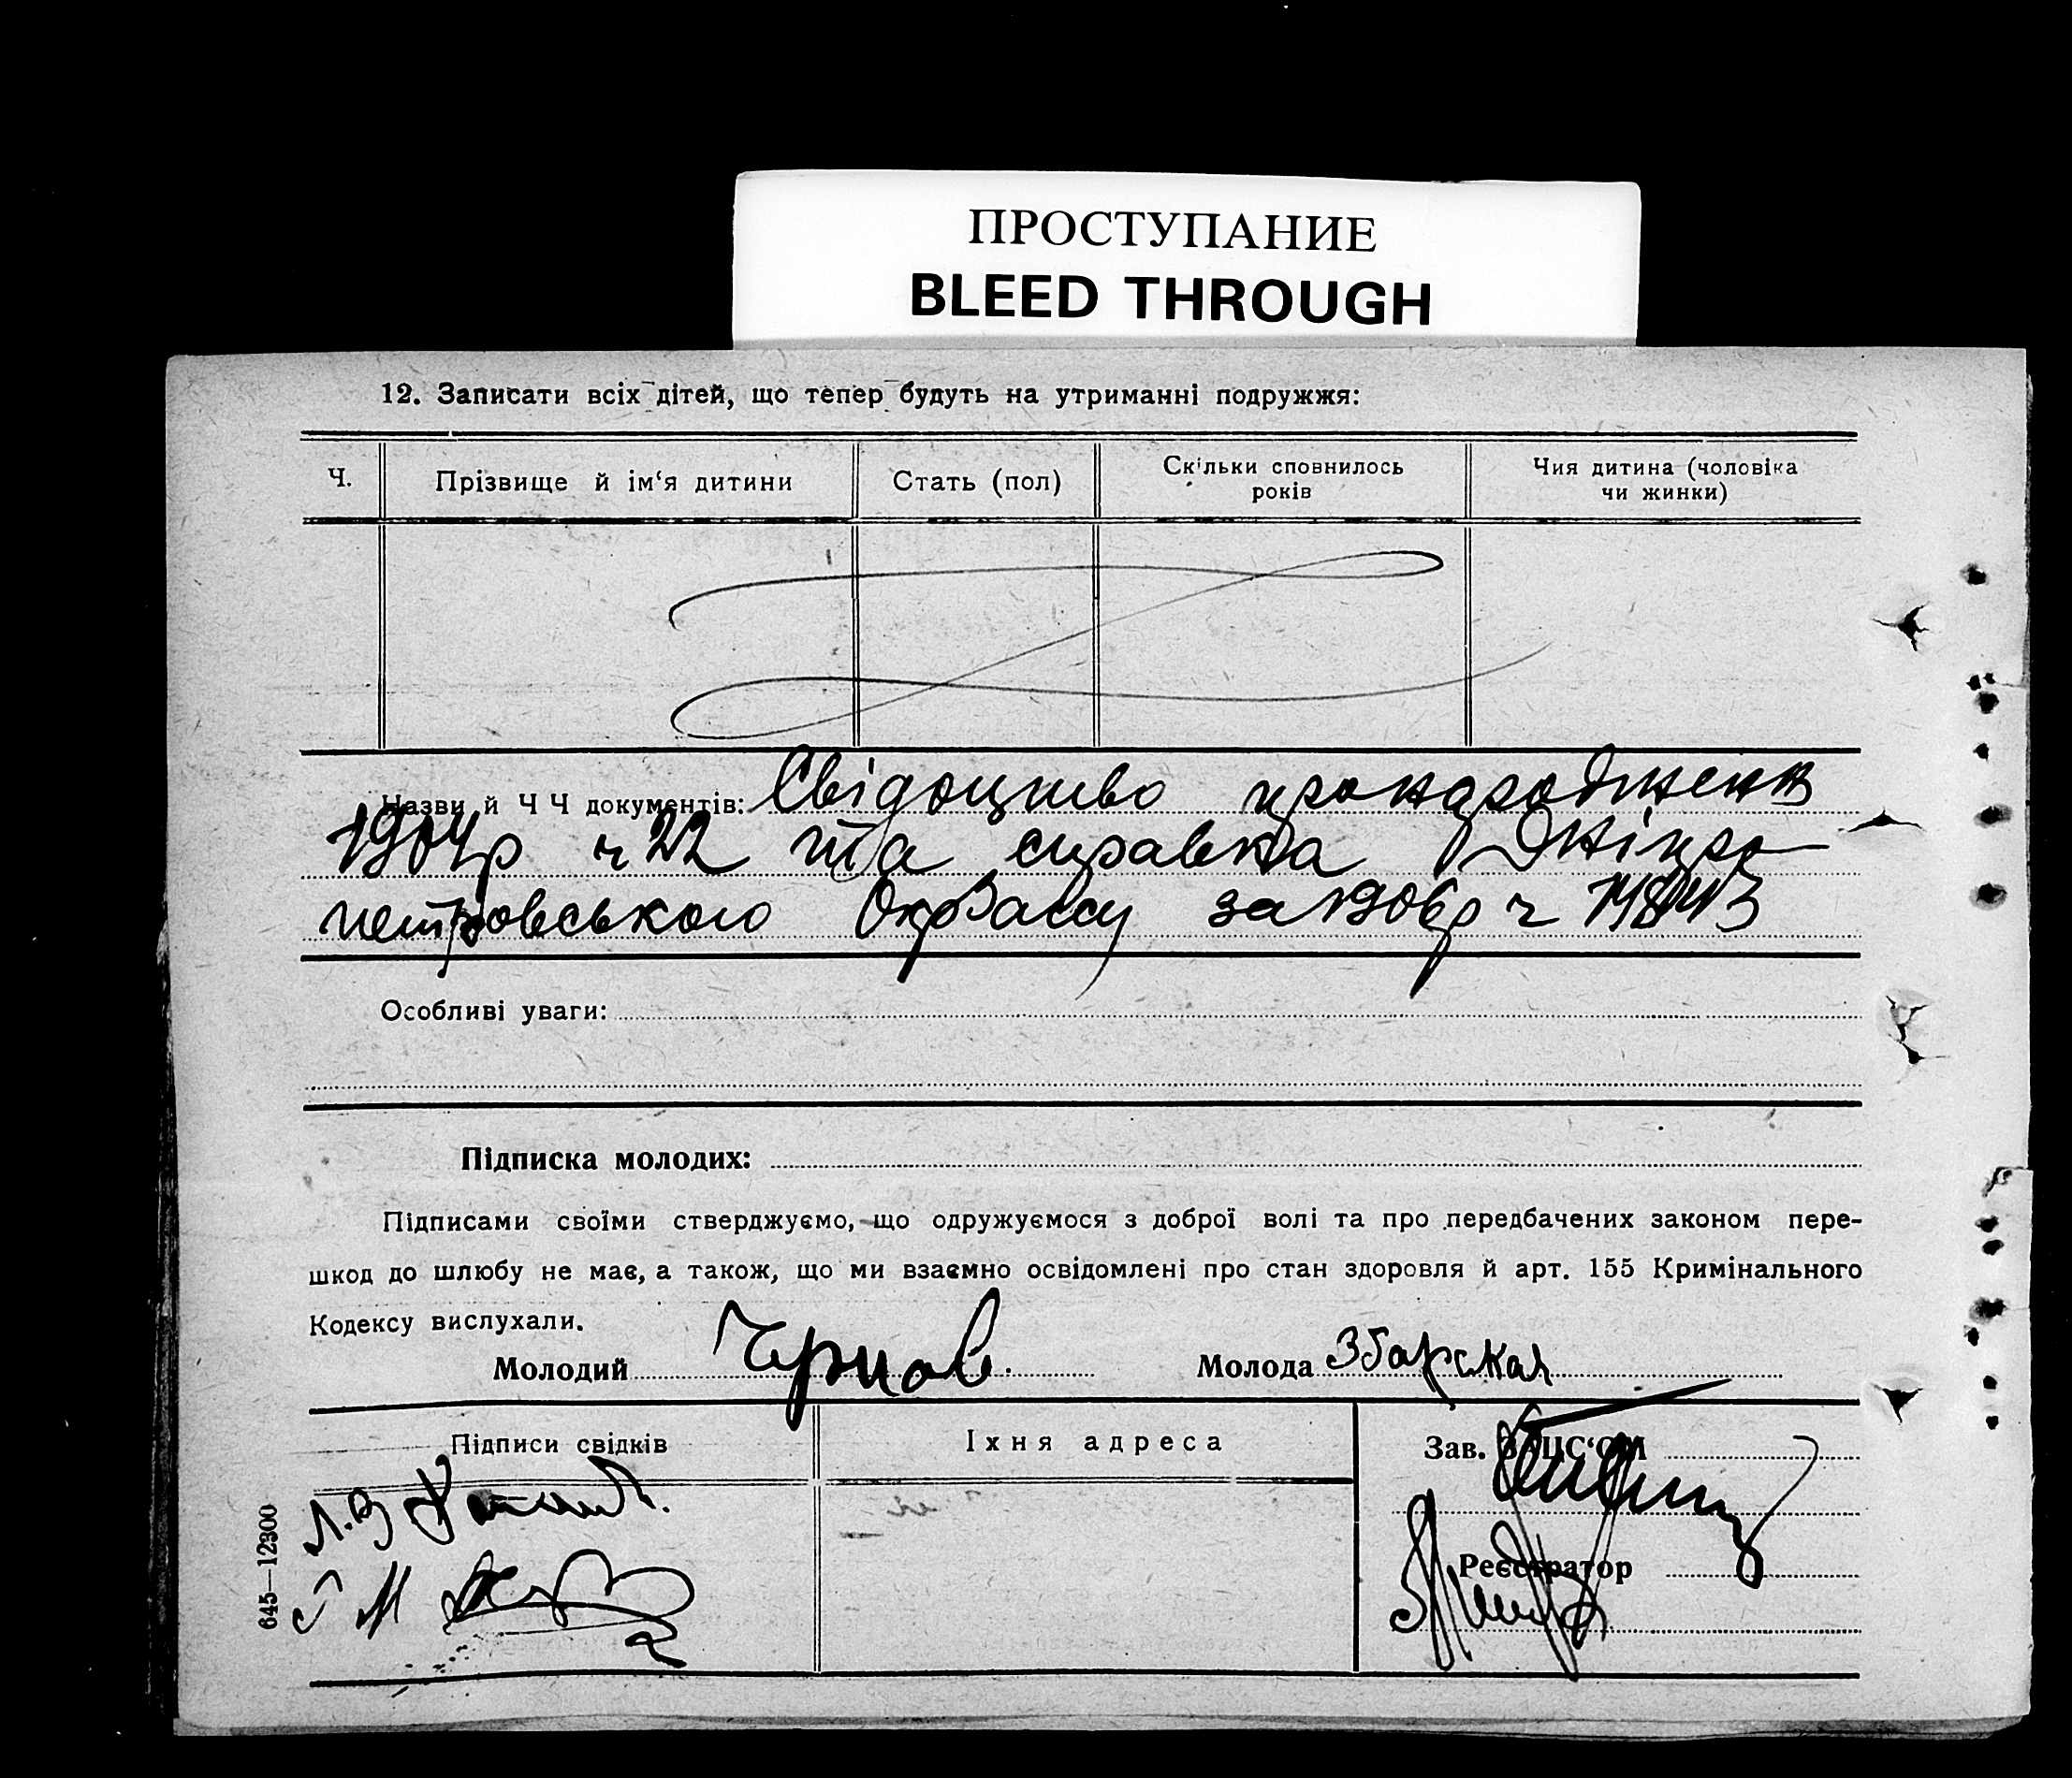 ПРОСТУПАНИЕ
BLEED THROUGH
12. Записати всіх дітей, що тепер будуть на утриманні подружжя:
Ч.
Прізвище й ім'я дитини
Стать (пол)
Скільки сповнилось
років
Чия дитина (чоловіка
чи жинки)
Назви й Ч Ч документів: Свідоцтво про народження
1904р ч 22 та справка Дніпро-
петровського за 1906р ч
Особливі уваги:
Підписка молодих:
Підписами своїми стверджуємо, що одружуємося з доброї волі та про передбачених законом пере-
шкод до шлюбу не має, а також, що ми взаємно освідомлені про стан здоровля й арт. 155 Кримінального
Кодексу вислухали.
Молодий Чернов. Молода Збарская
Підписи свідків
Їхня адреса
Зав. ЗАЦС'ОМ
Реєстратор
645—12300